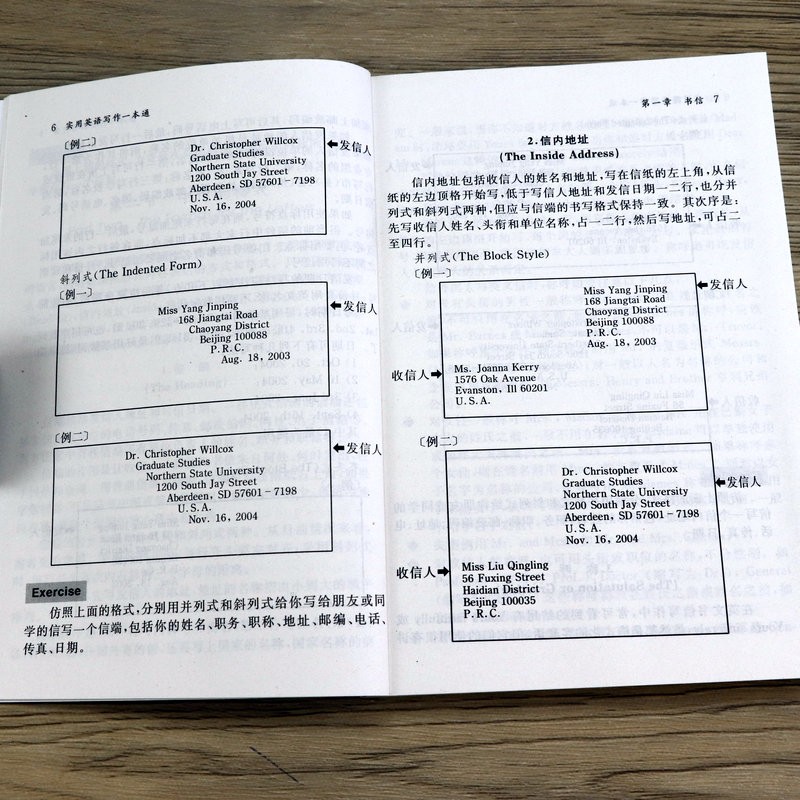 6 实用英语写作一本通
〔例二〕
Dr. Christopher Willcox
Graduate Studies
Northern State University
1200 South Jay Street
Aberdeen, SD 57601-7198
U.S.A.
Nov. 16, 2004
发信人
斜列式(The Indented Form)
〔例一〕
Miss Yang Jinping
168 Jiangtai Road
Chaoyang District
Beijing 100088
P.R.C.
Aug. 18, 2003
发信人
〔例二〕
Dr. Christopher Willcox
Graduate Studies
Northern State University
1200 South Jay Street
Aberdeen, SD 57601-7198
U.S.A.
Nov. 16, 2004
发信人
Exercise
仿照上面的格式,分别用并列式和斜列式给你写给朋友或同
学的信写一个信端,包括你的姓名、职务、职称、地址、邮编、电话、
传真、日期。
第一章 书信 7
2.信内地址
(The Inside Address)
信内地址包括收信人的姓名和地址,写在信纸的左上角,从信
纸的左边顶格开始写,低于写信人地址和发信日期一二行,也分并
列式和斜列式两种,但应与信端的书写格式保持一致。其次序是:
先写收信人姓名、头衔和单位名称,占一二行,然后写地址,可占二
至四行。
并列式(The Block Style)
〔例一〕
Miss Yang Jinping
168 Jiangtai Road
Chaoyang District
Beijing 100088
P.R.C.
Aug. 18, 2003
发信人
收信人
Ms. Joanna Kerry
1576 Oak Avenue
Evanston, Ill 60201
U.S.A.
〔例二〕
Dr. Christopher Willcox
Graduate Studies
Northern State University
1200 South Jay Street
Aberdeen, SD 57601-7198
U.S.A.
Nov. 16, 2004
发信人
收信人
Miss Liu Qingling
56 Fuxing Street
Haidian District
Beijing 100035
P.R.C.